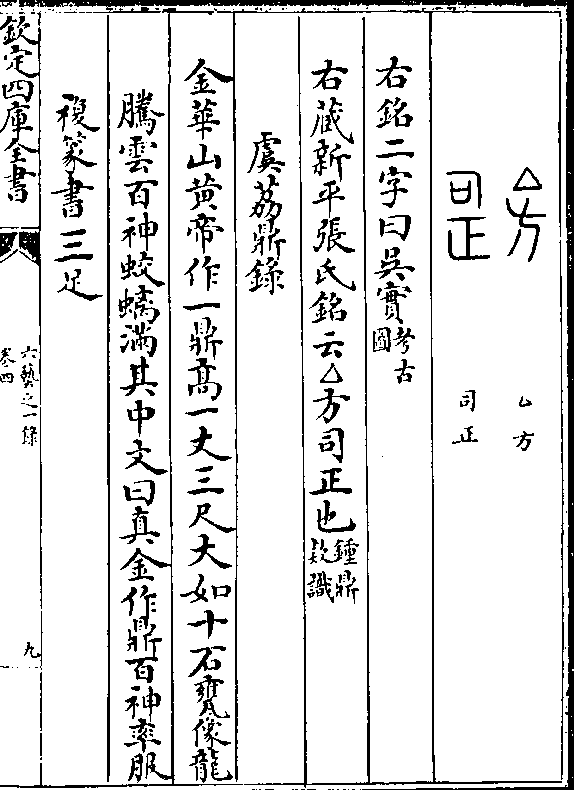 △方　方
司正　司正
右銘二字曰吳實考古圖
右藏新平張氏銘云△方司正也鍾鼎欵識
虞荔鼎錄
金華山黃帝作一鼎高一丈三尺大如十石甕像龍
騰雲百神蛟螭滿其中文曰真金作鼎百神率服
複篆書三足
欽定四庫全書
六藝之一錄
卷四
九